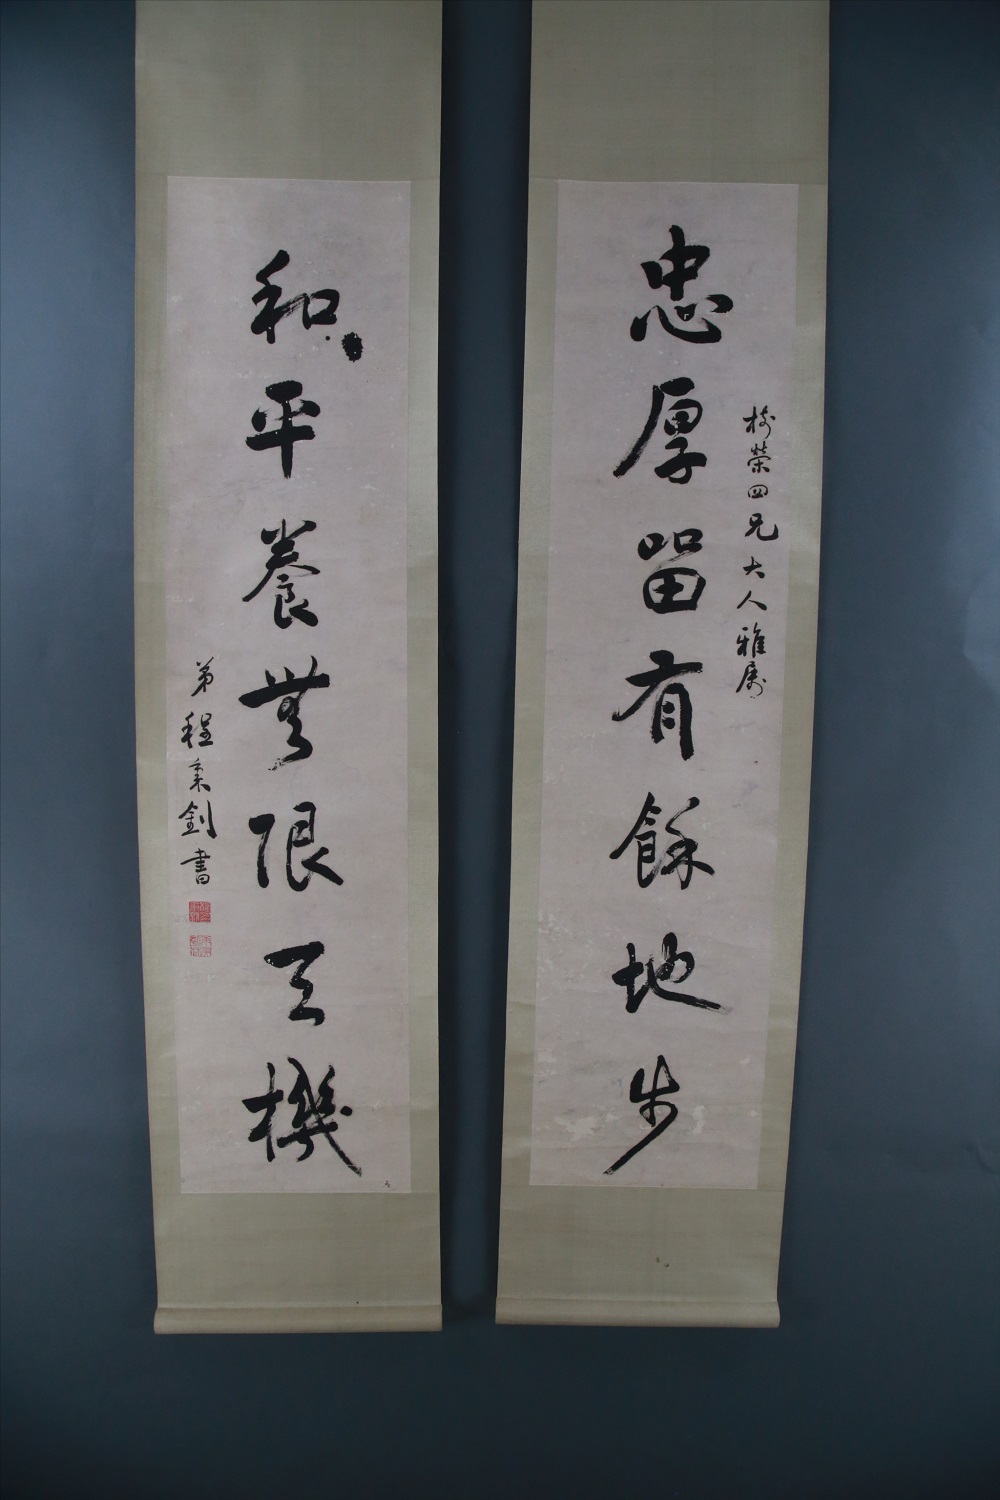 忠厚留有餘地步
榮四兄大人雅屬
和平養無限天機
弟程秉釗書